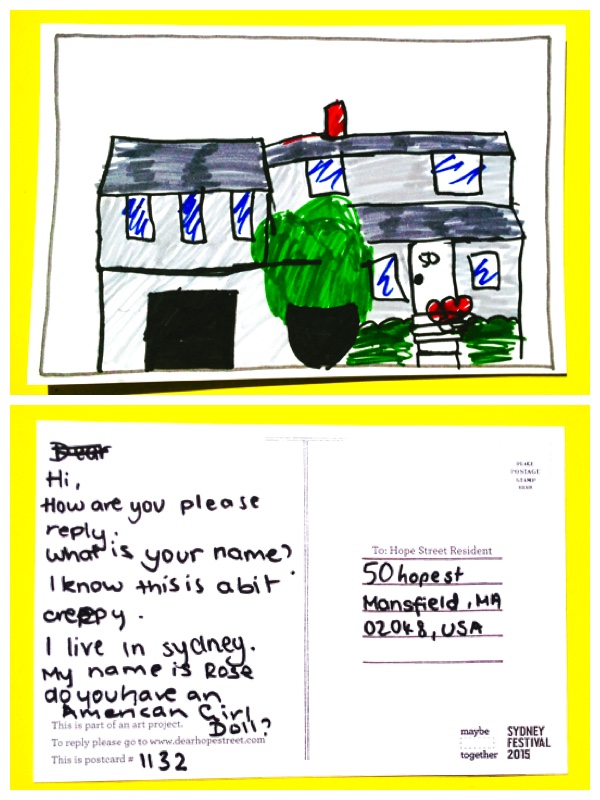 50
Dear
Hi,
How are you please
reply.
What is your name?
I know this is a bit
creepy.
I live in sydney.
My name is Rose
do you have an
American Girl
Doll?
This is part of an art project.
To reply please go to www.dearhopestreet.com
This is postcard # 1132
PLACE
POSTAGE
STAMP
HERE
To: Hope Street Resident
50 hope st
Mansfield, MA
02048, USA
maybe
together
SYDNEY
FESTIVAL
2015